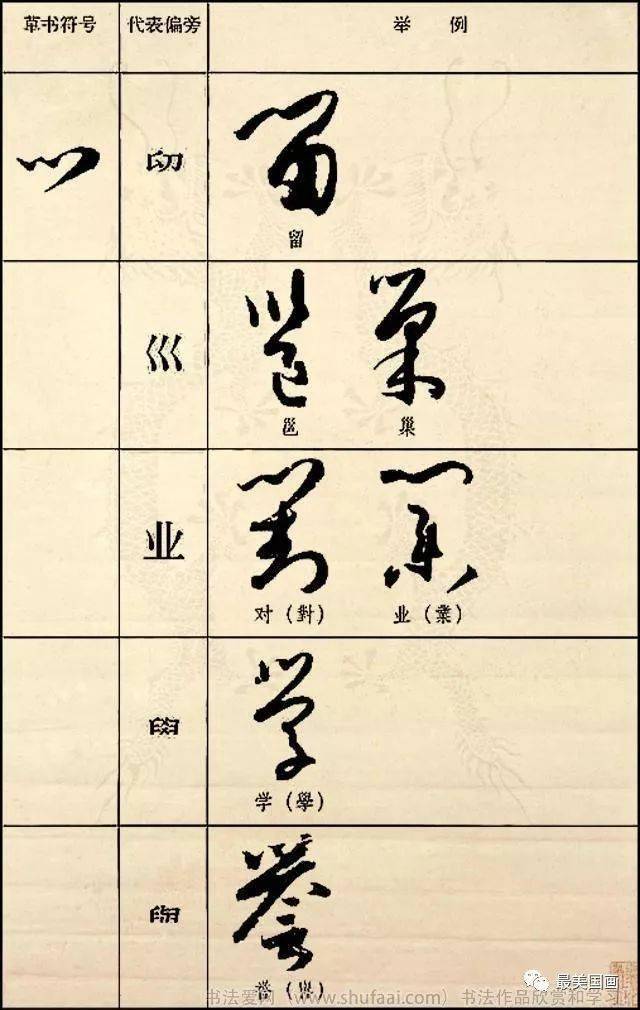 草书符号 代表偏旁 举 例
留
巛
邕 巢
业
对（對） 业（業）
学（學）
最美国画
书法爱网（www.shufaai.com）书法作品欣赏和学习